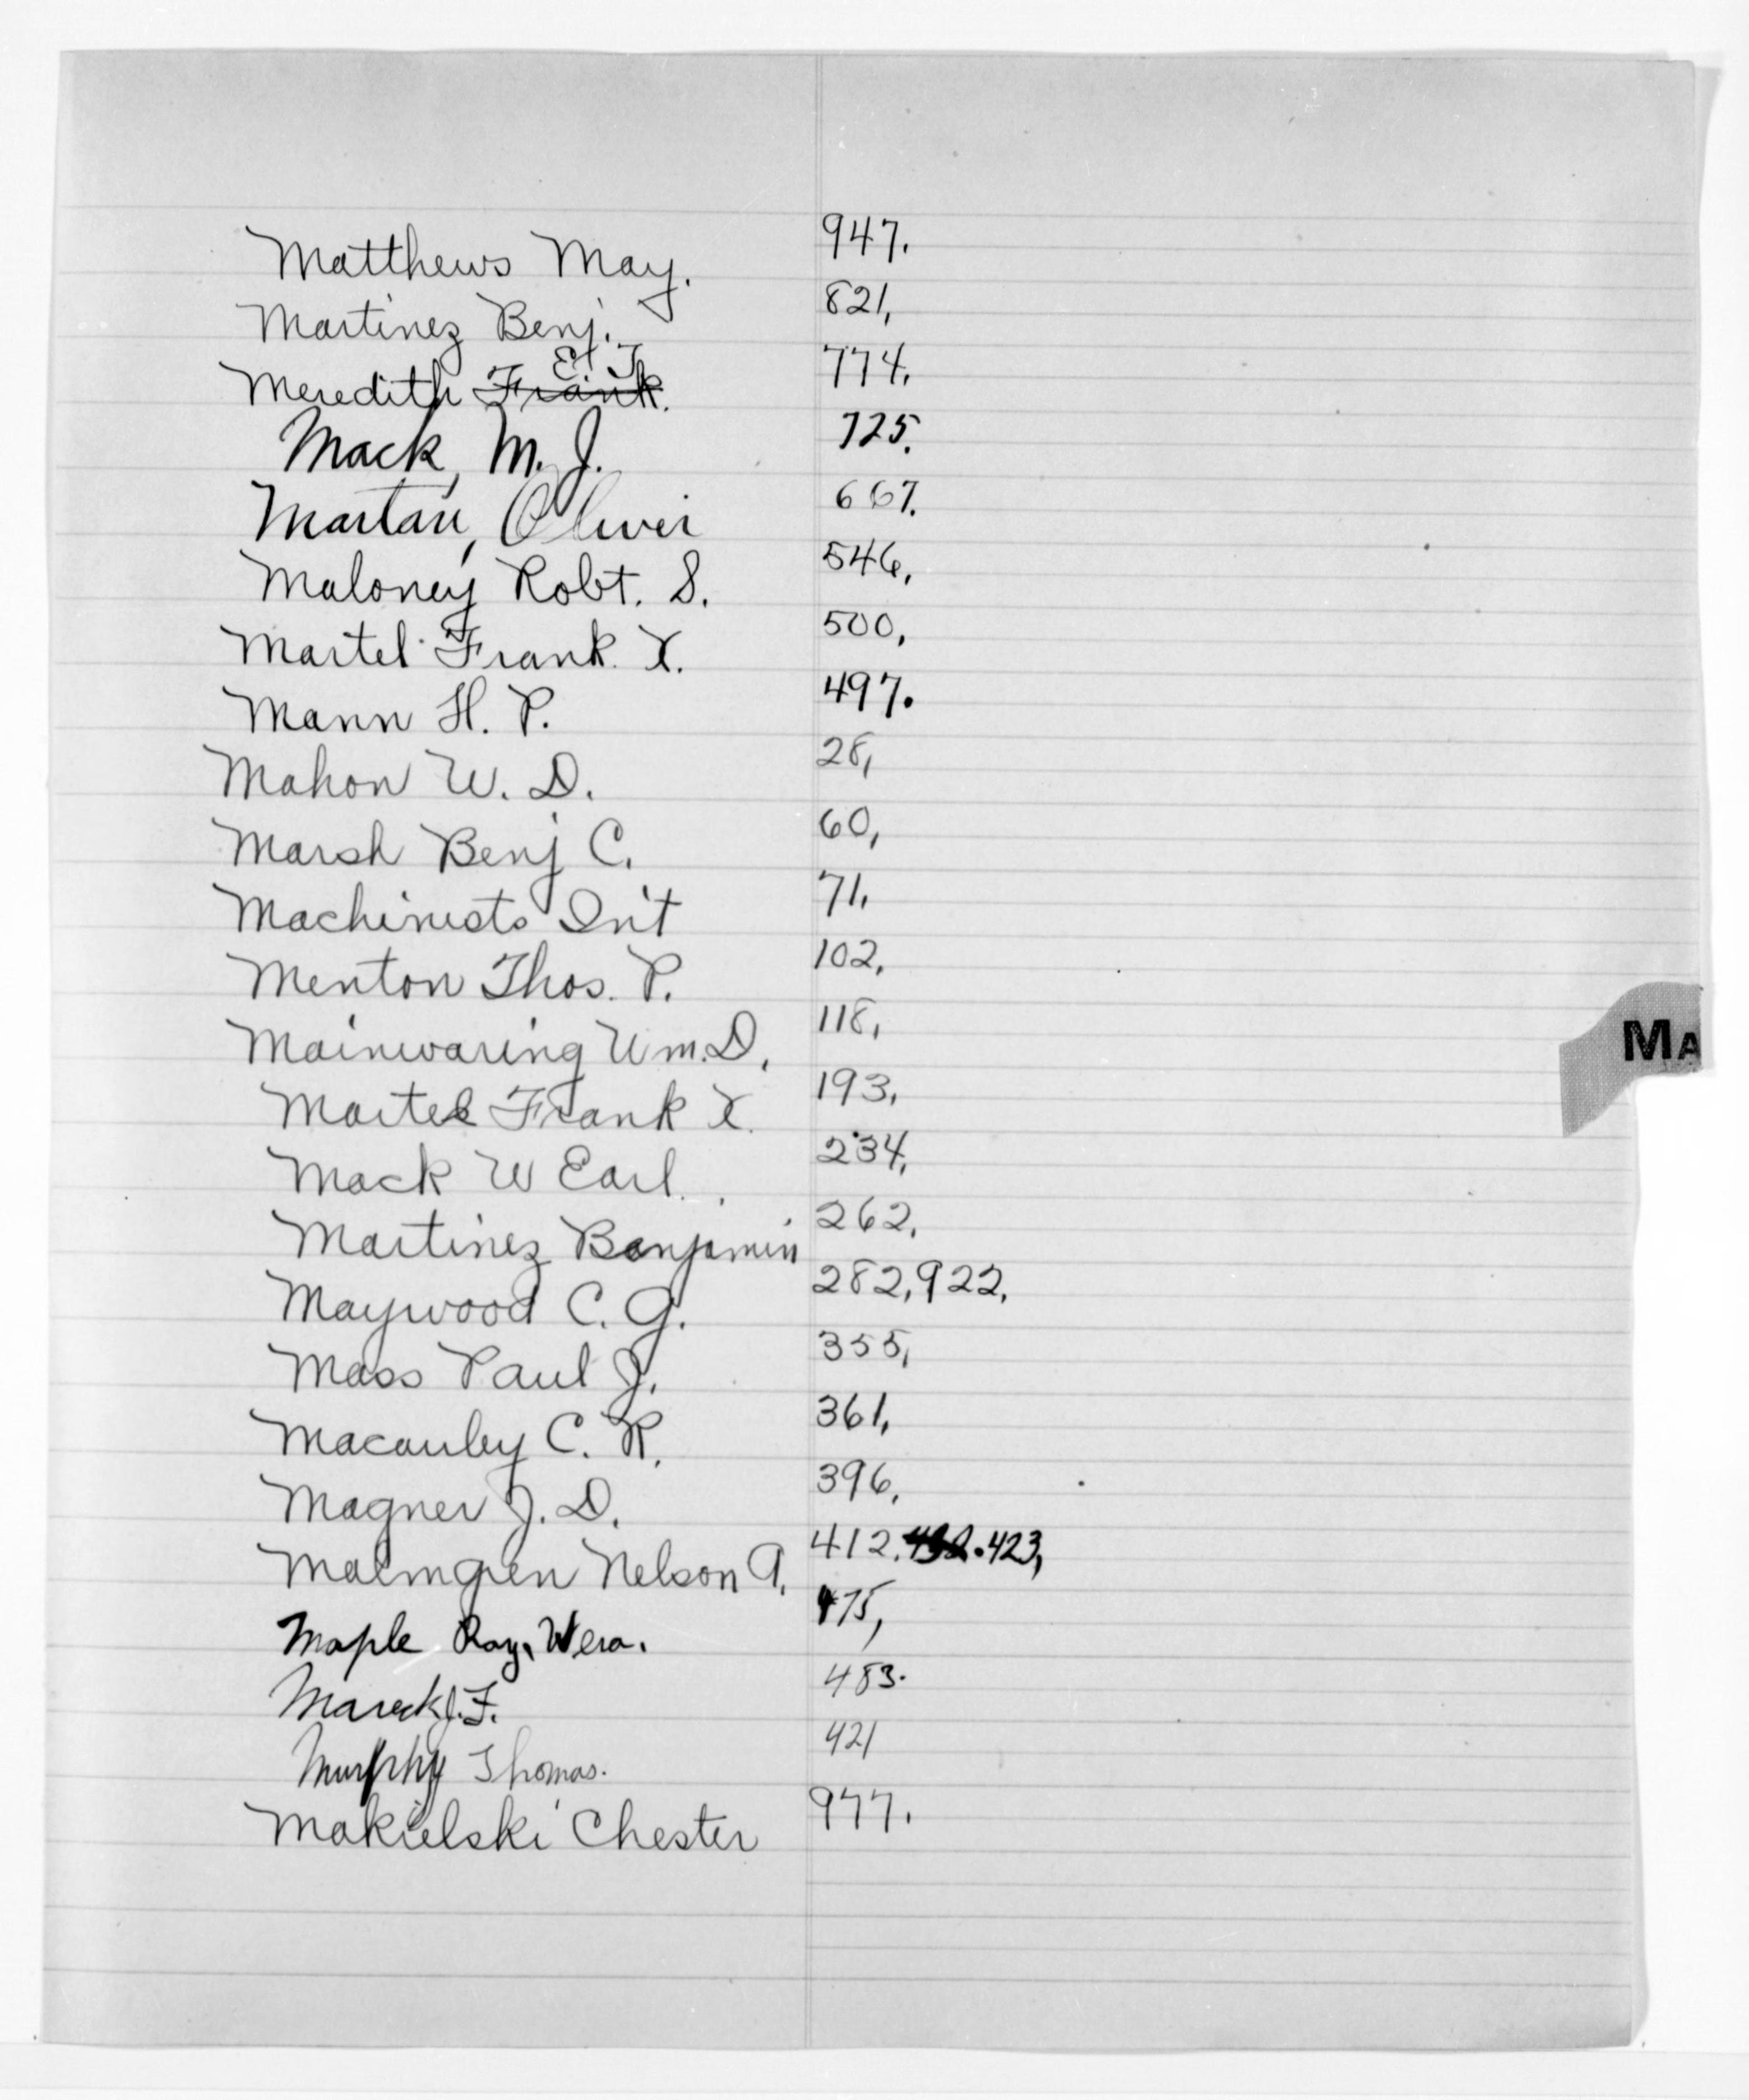 Matthews May. 947.
Martinez Benj. 821,
E. T.
Meredith Frank. 774.
Mack, M. J. 725.
Martan, Oliver 667.
Maloney Robt. S. 546,
Martel Frank. X. 500,
Mann H. P. 497.
Mahon W. D. 28,
Marsh Benj C. 60,
Machinists Int 71,
Menton Thos. P. 102,
Mainwaring Wm. D. 118,
Martel Frank X. 193,
Mack W Earl. 234,
Martinez Benjamin 262,
Maywood C. G. 282, 922,
Mass Paul J. 355,
Macauley C. R. 361,
Magner J. D. 396,
Malmgren Nelson A. 412. 423,
Maple Ray, Wera. 475,
J. F. 483.
Murphy Thomas. 421
Makielski Chester 977.
MA